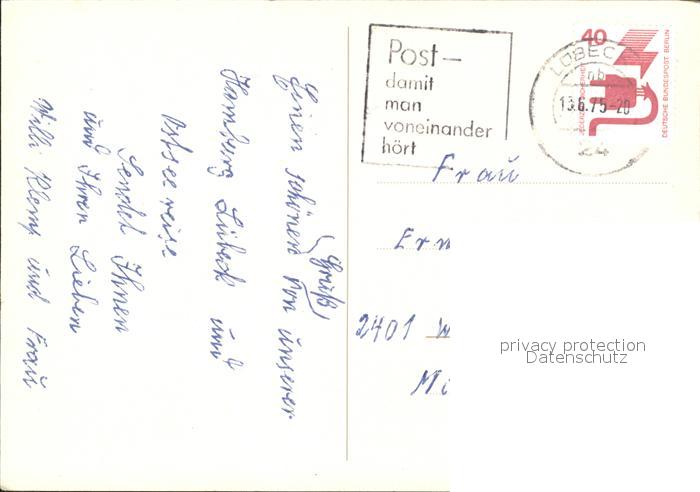 Einen schönen (Gruß) von unserer
Hamburg Lübeck und
Ostseereise
Sendet Ihnen
und Ihren Lieben
Willi Klemp und Frau
Post–
damit
man
voneinander
hört
LÜBECK
nb
13.6.75-20
24
40
JEDERZEIT SICHERHEIT
DEUTSCHE BUNDESPOST BERLIN
Frau
Ern
2401 W
Mi
privacy protection
Datenschutz